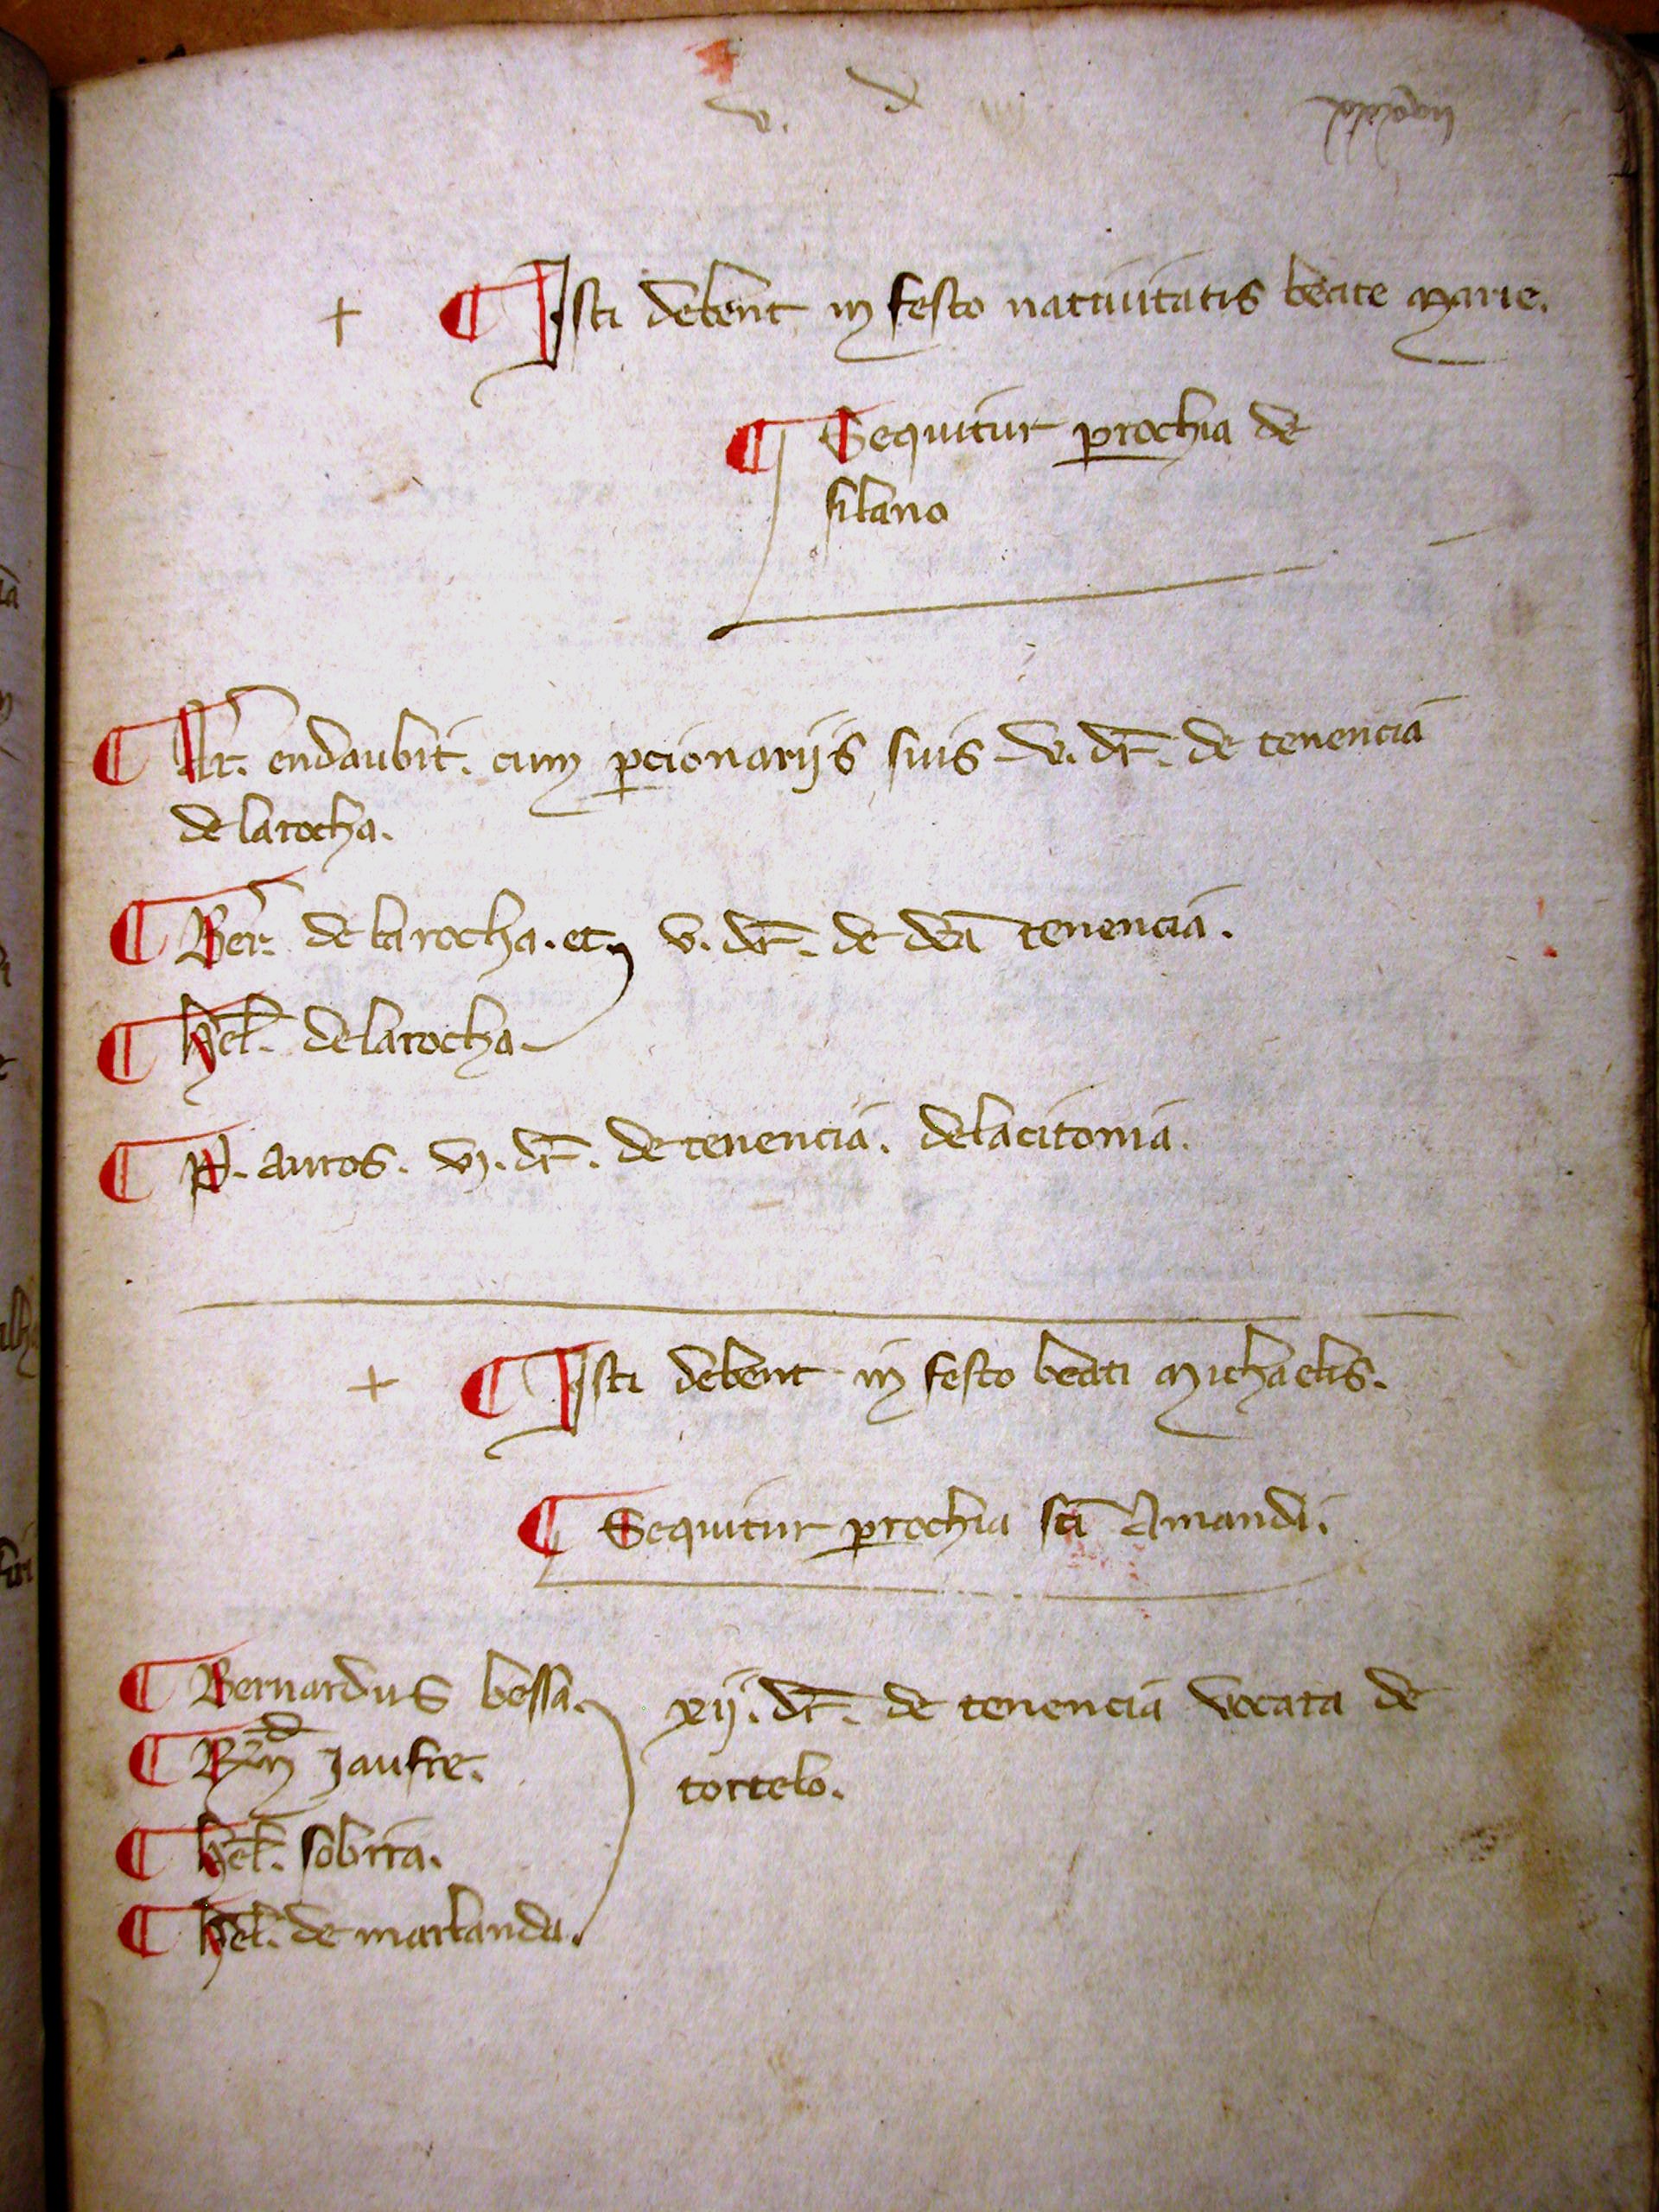 v.
+ ¶ Isti debent in festo nativitatis beate marie.
¶ Sequitur prochia de
silano
¶ Ar. endaubit. cum pcionarijs suis v. dr. de tenencia
de larocha.
¶ Ber. de larocha. et v. dr. de dca tenencia.
¶ hel. delarocha
¶ P. auros. vj. dr. de tenencia. delacitonia.
+ ¶ Isti debent in festo beati michaelis.
¶ Sequitur prochia sci Amandi.
¶ Bernardus bossa. xij. dr. de tenencia vocata de
¶ Jaufre. tortelo.
¶ hel. sobrira.
¶ hel. de marlanda.